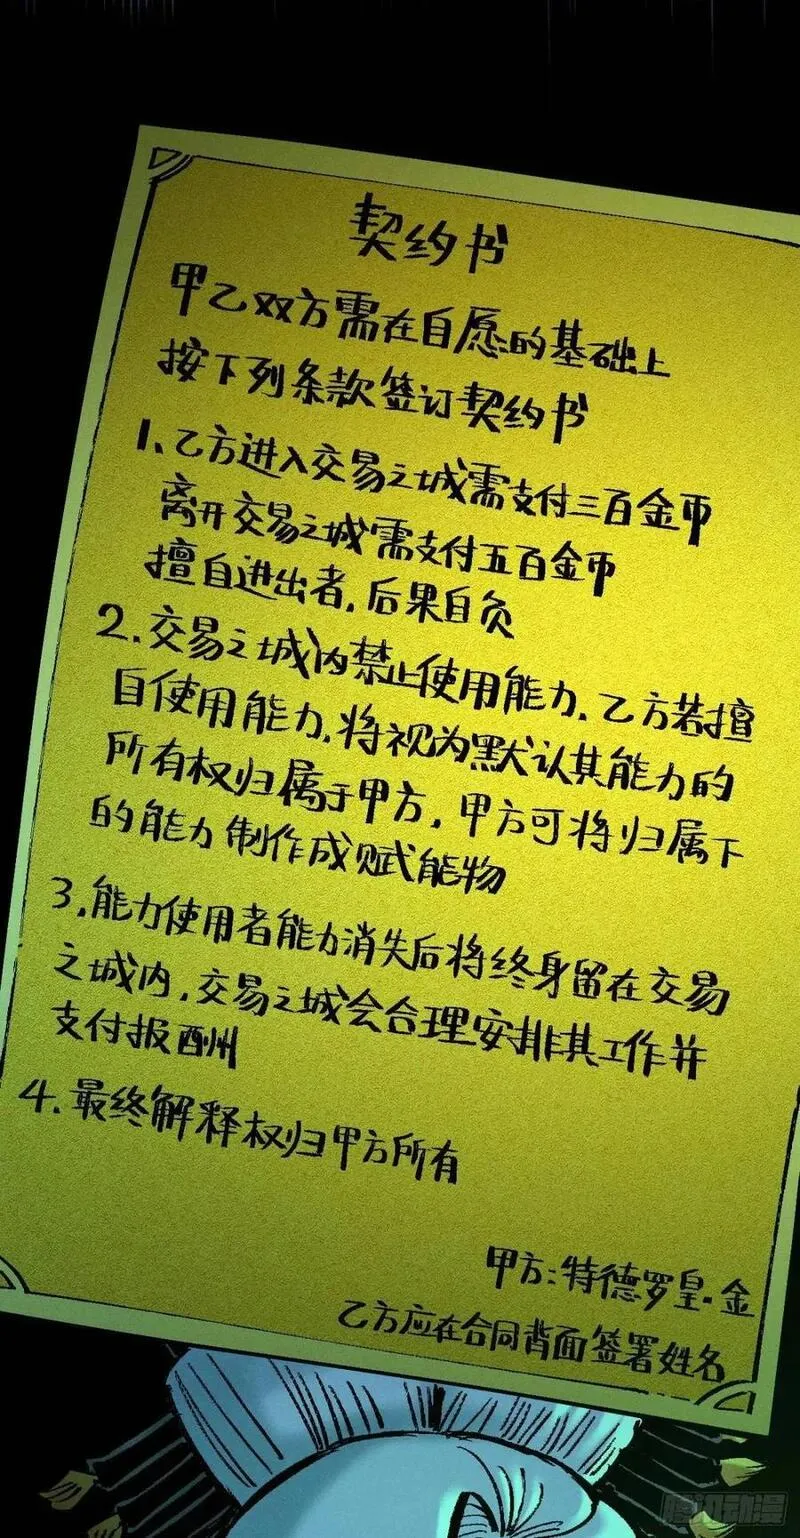 契约书
甲乙双方需在自愿的基础上
按下列条款签订契约书
1、乙方进入交易之城需支付三百金币
离开交易之城需支付五百金币
擅自进出者,后果自负
2、交易之城内禁止使用能力,乙方若擅
自使用能力,将视为默认其能力的
所有权归属于甲方,甲方可将归属下
的能力制作成赋能物
3、能力使用者能力消失后将终身留在交易
之城内,交易之城会合理安排其工作并
支付报酬
4、最终解释权归甲方所有
甲方:特德罗皇.金
乙方应在合同背面签署姓名
腾讯动漫